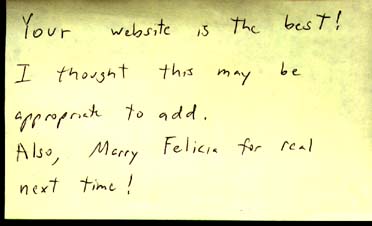 Your website is the best!
I thought this may be
appropriate to add.
Also, Marry Felicia for real
next time!